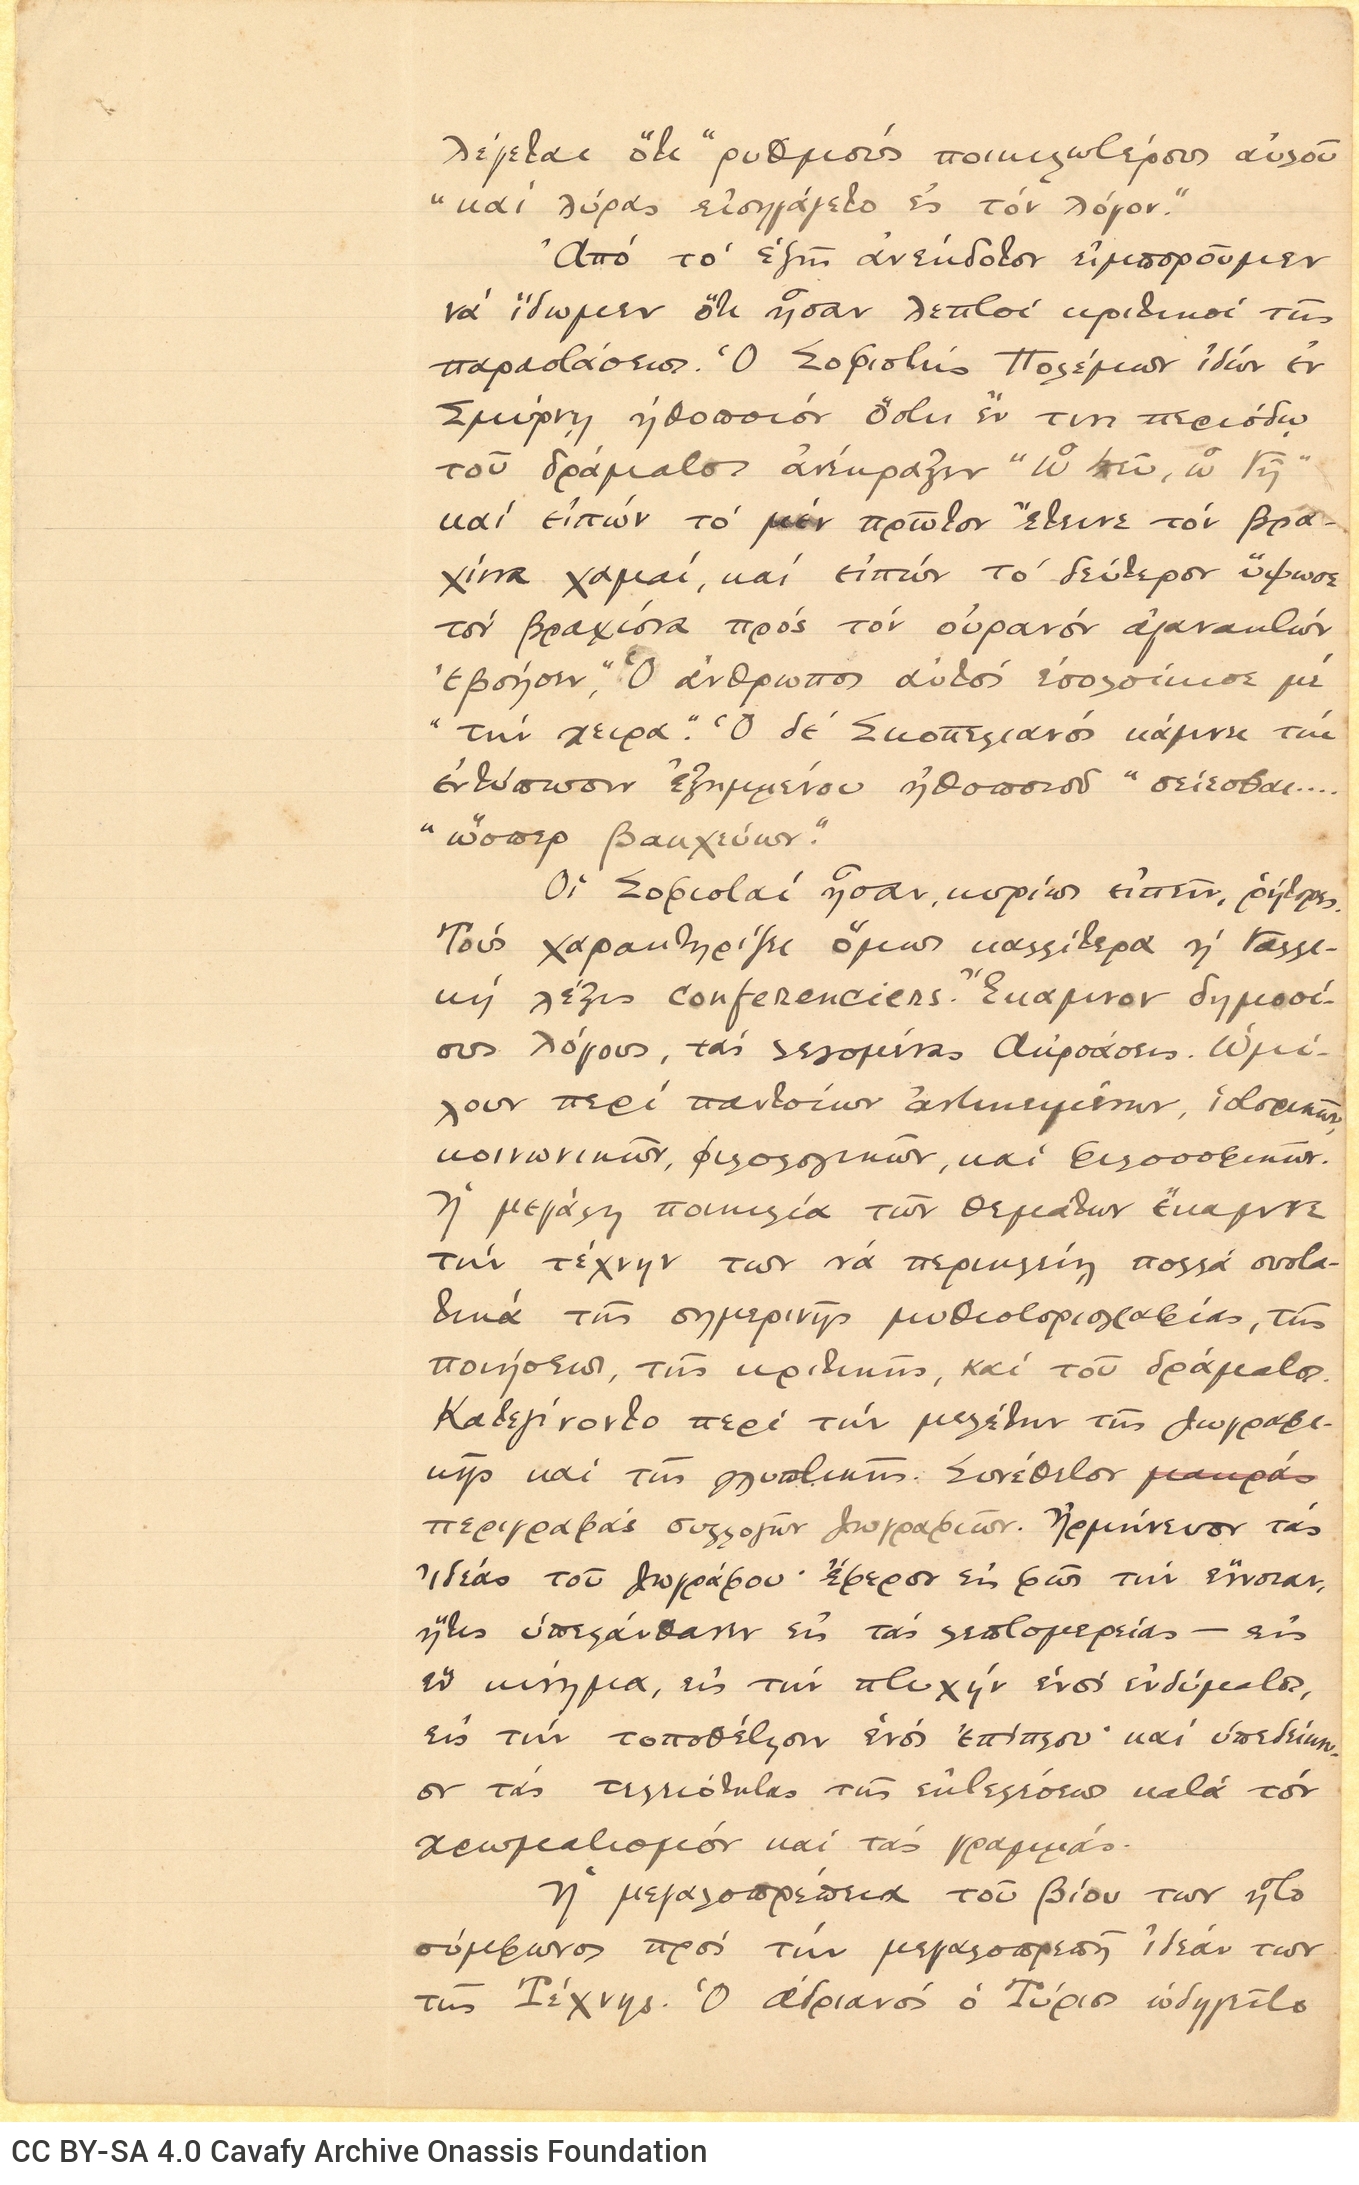 λέγεται ὅτι “ρυθμοὺς ποικιλωτέρους αὐλοῦ
“καὶ λύρας εἰσηγάγετο ἐς τὸν λόγον.”
Ἀπὸ τὸ ἑξῆς ἀνέκδοτον εἰμποροῦμεν
νὰ ἴδωμεν ὅτι ἦσαν λεπτοὶ κριτικοὶ τῆς
παραστάσεως. Ὁ Σοφιστὴς Πολέμων ἰδὼν ἐν
Σμύρνῃ ἠθοποιὸν ὅστις ἔν τινι περιόδῳ
τοῦ δράματος ἀνέκραξεν “ὦ Ζεῦ, ὦ Γῆ”
καὶ εἰπὼν τὸ μὲν πρῶτον ἔτεινε τὸν βρα-
χίονα χαμαί, καὶ εἰπὼν τὸ δεύτερον ὕψωσε
τὸν βραχίονα πρὸς τὸν οὐρανὸν ἀγανακτῶν
ἐβόησεν, “Ὁ ἄνθρωπος αὐτὸς ἐσολοίκισε μὲ
“τὴν χεῖρα.” Ὁ δὲ Σκοπελιανὸς κάμνει τὴν
ἐντύπωσιν ἐξημμένου ἠθοποιοῦ “σείεσθαι....
“ὥσπερ βακχεύων.”
Οἱ Σοφισταὶ ἦσαν, κυρίως εἰπεῖν, ῥήτορες.
Τοὺς χαρακτηρίζει ὅμως καλλίτερα ἡ Γαλλι-
κὴ λέξις conferenciers. Ἔκαμνον δημοσί-
ους λόγους, τὰς λεγομένας Ἀκροάσεις. Ὡμί-
λουν περὶ παντοίων ἀντικειμένων, ἱστορικῶν,
κοινωνικῶν, φιλολογικῶν, καὶ φιλοσοφικῶν.
Ἡ μεγάλη ποικιλία τῶν θεμάτων ἔκαμνε
τὴν τέχνην των νὰ περικλείῃ πολλὰ συστα-
τικὰ τῆς σημερινῆς μυθιστοριογραφίας, τῆς
ποιήσεως, τῆς κριτικῆς, καὶ τοῦ δράματος.
Κατεγίνοντο περὶ τὴν μελέτην τῆς ζωγραφι-
κῆς καὶ τῆς γλυπτικῆς. Συνέθετον μακρὰς
περιγραφὰς συλλογῶν ζωγραφιῶν. Ἡρμήνευον τὰς
ἰδέας τοῦ ζωγράφου· ἔφερον εἰς φῶς τὴν ἔννοιαν,
ἥτις ὑπελάνθανεν εἰς τὰς λεπτομερείας — εἰς
ἓν κίνημα, εἰς τὴν πτυχὴν ἑνὸς ἐνδύματος,
εἰς τὴν τοποθέτησιν ἑνὸς ἐπίπλου· καὶ ὑπεδείκνυ-
ον τὰς τελειότητας τῆς ἐκτελέσεως κατὰ τὸν
χρωματισμὸν καὶ τὰς γραμμάς.
Ἡ μεγαλοπρέπεια τοῦ βίου των ἦτο
σύμφωνος πρὸς τὴν μεγαλοπρεπῆ ἰδέαν των
τῆς Τέχνης. Ὁ Ἀδριανὸς ὁ Τύριος ὡδηγεῖτο
CC BY-SA 4.0 Cavafy Archive Onassis Foundation